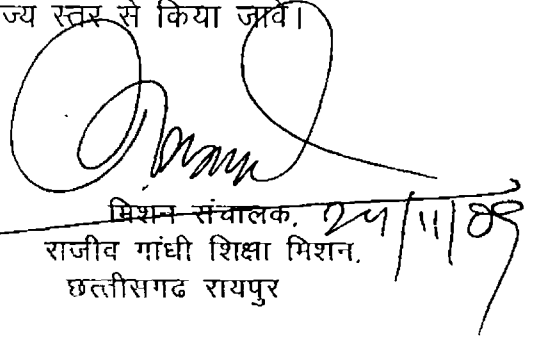 ज्य स्तर से किया जावे।
मिशन संचालक,
राजीव गांधी शिक्षा मिशन,
छत्तीसगढ रायपुर